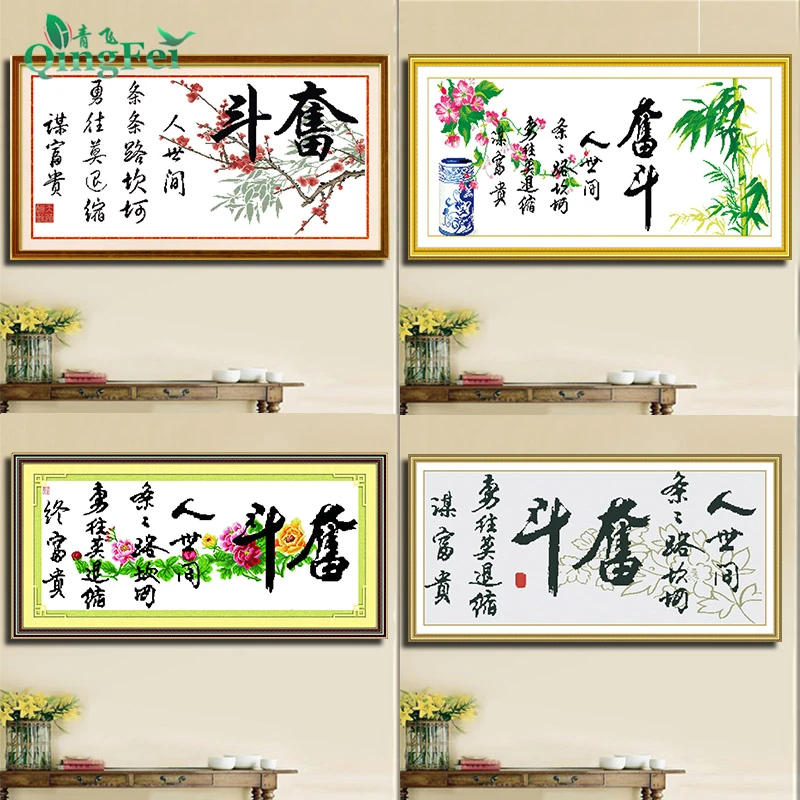 青飞
QingFei
奮斗
人世间
条条路坎坷
勇往莫退缩
谋富貴
奮斗
人世间
条〻路坎坷
勇往莫退缩
谋富貴
奮斗
人世间
条〻路坎坷
勇往莫退缩
终富貴
人世间
条〻路坎坷
奮斗
勇往莫退缩
谋富貴